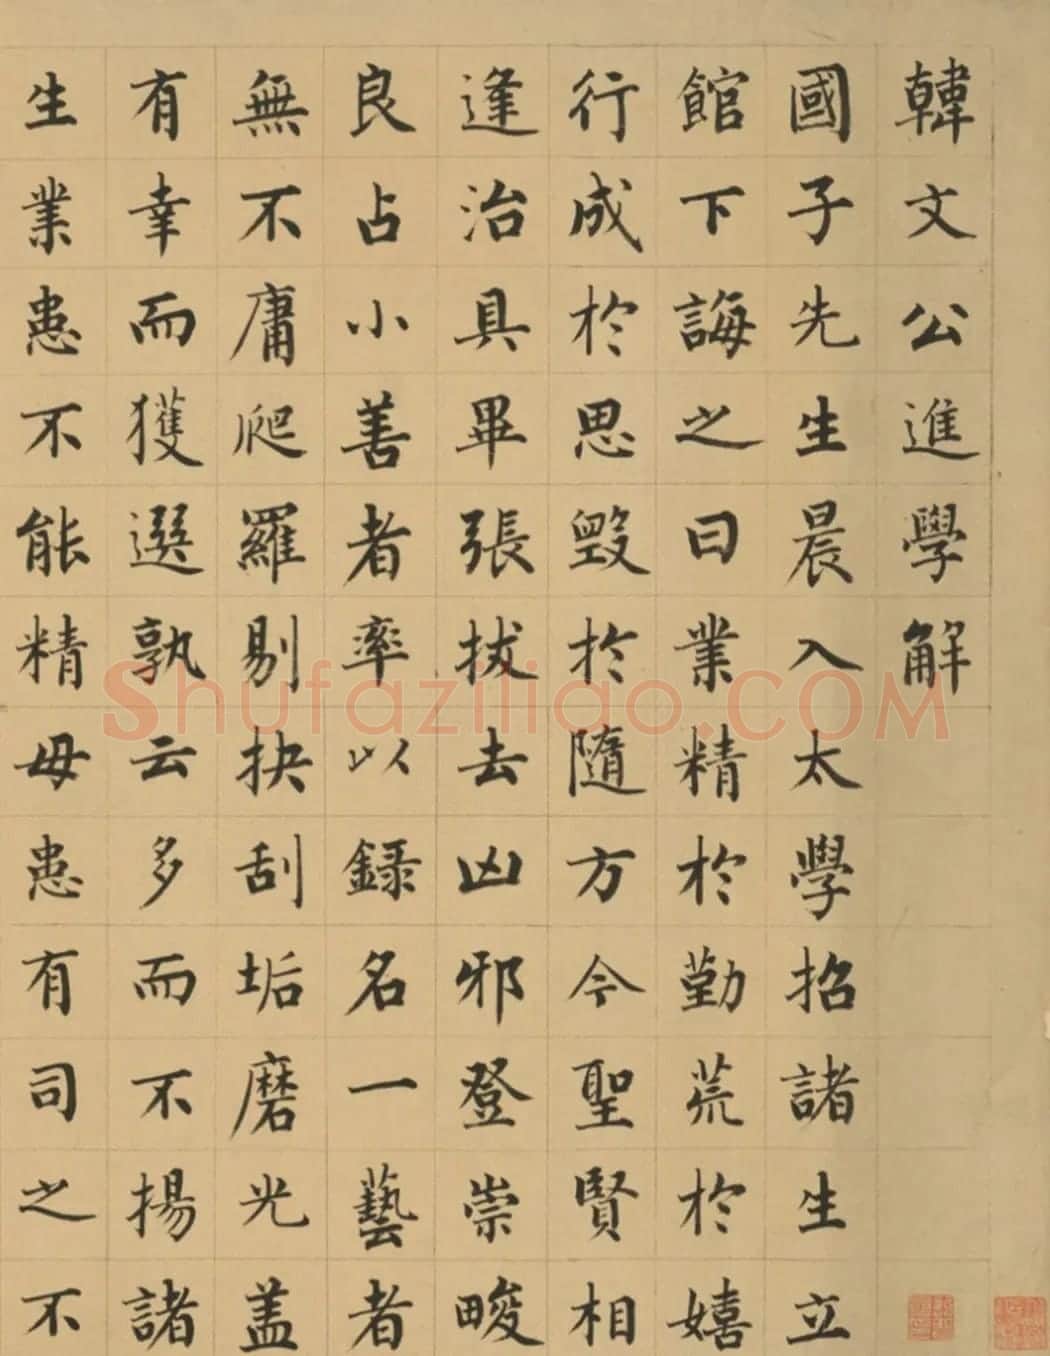 韓文公進學解
國子先生晨入太學招諸生立
館下誨之曰業精於勤荒於嬉
行成於思毀於隨方今聖賢相
逢治具畢張拔去凶邪登崇畯
良占小善者率以錄名一藝者
無不庸爬羅剔抉刮垢磨光盖
有幸而獲選孰云多而不揚諸
生業患不能精毋患有司之不
Shufaziliao.COM